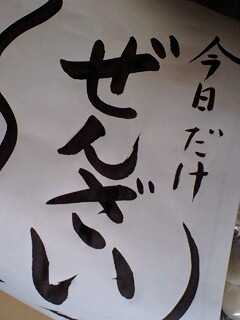 今日だけ
ぜんざい